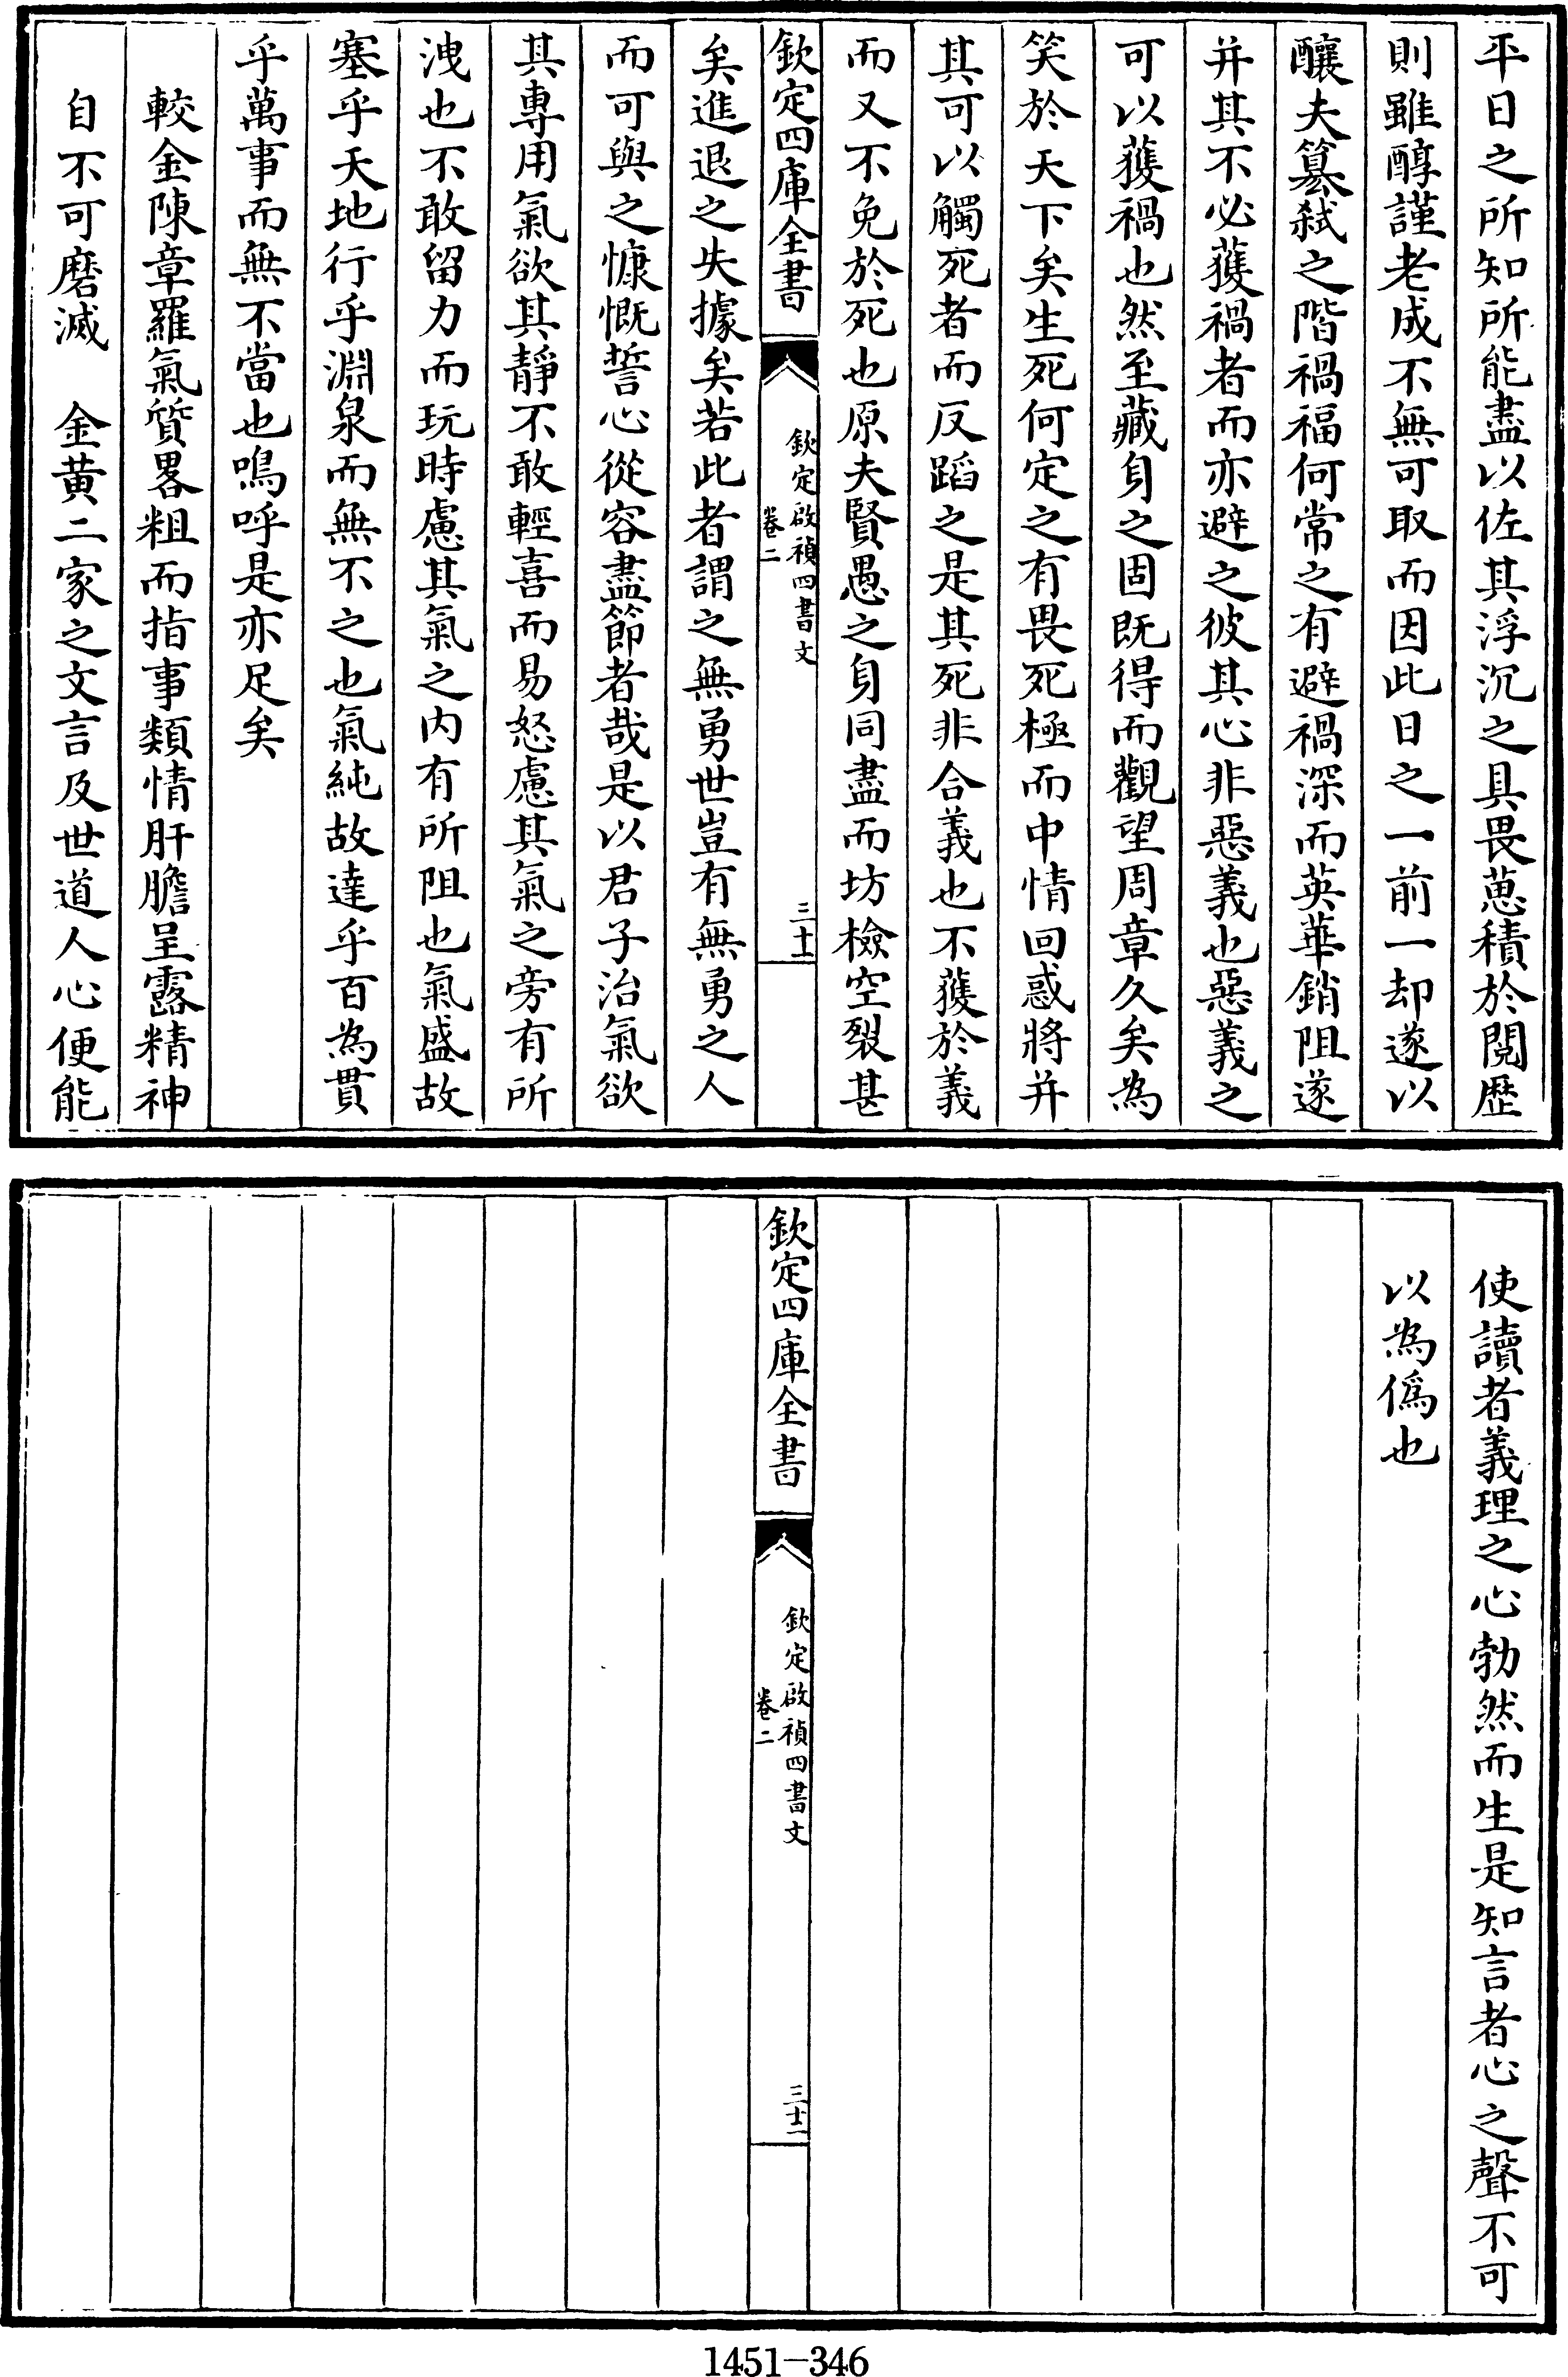 平日之所知所能盡以佐其浮沉之具畏葸積於閱歷
則雖醇謹老成不無可取而因此日之一前一却遂以
釀夫篡弑之階禍福何常之有避禍深而英華銷阻遂
并其不必獲禍者而亦避之彼其心非惡義也惡義之
可以獲禍也然至藏身之固既得而觀望周章久矣為
笑於天下矣生死何定之有畏死極而中情回惑將并
其可以觸死者而反蹈之是其死非合義也不獲於義
而又不免於死也原夫賢愚之身同盡而坊檢空裂甚
欽定四庫全書
欽定啟禎四書文
卷二
三十一
矣進退之失據矣若此者謂之無勇世豈有無勇之人
而可與之慷慨誓心從容盡節者哉是以君子治氣欲
其專用氣欲其靜不敢輕喜而易怒慮其氣之旁有所
洩也不敢留力而玩時慮其氣之内有所阻也氣盛故
塞乎天地行乎淵泉而無不之也氣純故達乎百為貫
乎萬事而無不當也嗚呼是亦足矣
較金陳章羅氣質畧粗而指事類情肝膽呈露精神
自不可磨滅　金黄二家之文言及世道人心便能
使讀者義理之心勃然而生是知言者心之聲不可
以為僞也
欽定四庫全書
欽定啟禎四書文
卷二
三十二
1451-346